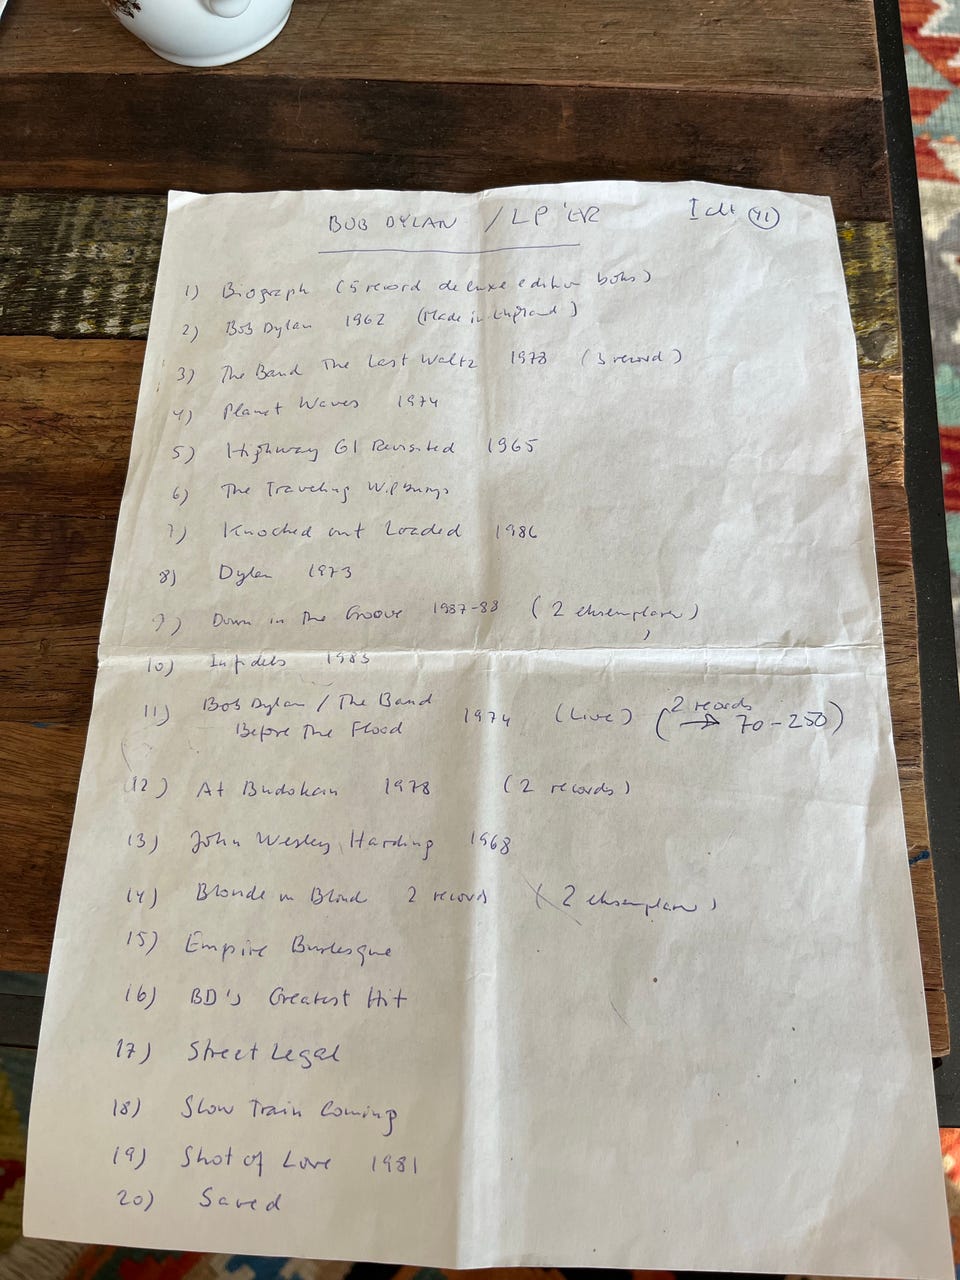 BOB DYLAN / LP'ER Ialt 41
1) Biograph (5 record de luxe edition boks)
2) Bob Dylan 1962 (Made in England)
3) The Band The Last Waltz 1978 (3 record)
4) Planet Waves 1974
5) Highway 61 Revisited 1965
6) The Traveling Wilburys
7) Knocked out Loaded 1986
8) Dylan 1973
9) Down in the Groove 1987-88 (2 eksemplarer)
10) Infidels 1983
11) Bob Dylan / The Band
Before The Flood 1974 (Live) (2 records → 70-250)
12) At Budokan 1978 (2 records)
13) John Wesley Harding 1968
14) Blonde on Blond 2 records (2 eksemplarer)
15) Empire Burlesque
16) BD's Greatest Hit
17) Street Legal
18) Slow Train Coming
19) Shot of Love 1981
20) Saved